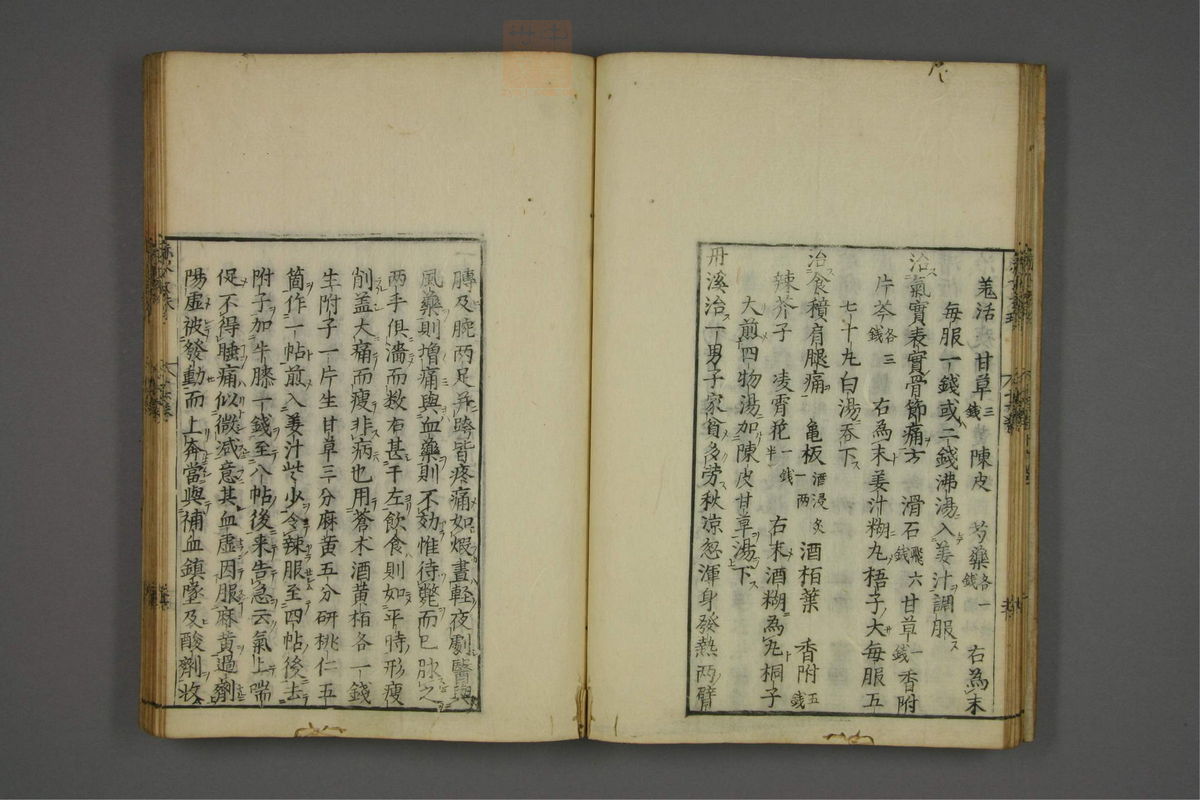 羗活 甘草三錢 陳皮 芍藥各一錢 右為末
每服一錢或二錢沸湯入姜汁調服
治氣實表實骨節痛方 滑石飛六錢 甘草一錢 香附
片芩各三錢 右為末姜汁糊丸梧子大每服五
七十丸白湯吞下
治食積肩腿痛 亀板酒浸炙一兩 酒栢葉 香附五錢
辣芥子 凌霄花半一錢 右末酒糊為丸桐子
大煎四物湯加陳皮甘草湯下
丹溪治一男子家貧多劳秋凉忽渾身發熱两臂
膊及腕两足并胯皆疼痛如煅晝輕夜劇醫與
風藥則增痛與血藥則不効惟待斃而已脉之
两手俱濇而数右甚于左飲食則如平時形瘦
削盖大痛而瘦非病也用蒼术酒黄栢各一錢
生附子一片生甘草三分麻黄五分研桃仁五
箇作一帖煎入姜汁些少令辣服至四帖後去
附子加牛膝一錢至八帖後来告急云氣上喘
促不得睡痛似微减意其血虚因服麻黄過劑
陽虚被發動而上奔當與補血鎮墜及酸劑收